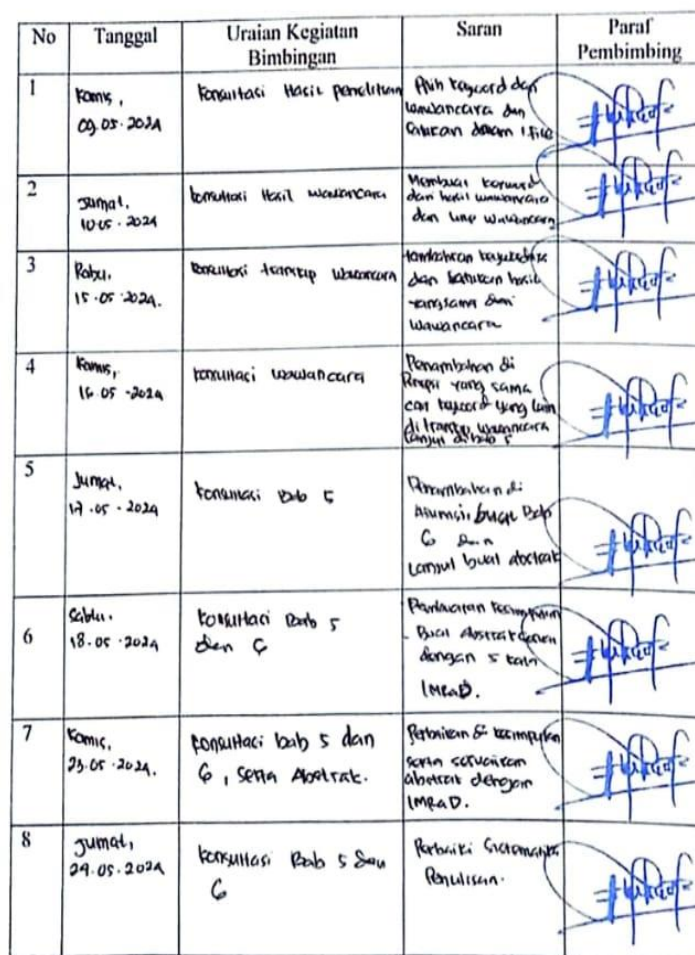 No Tanggal Uraian Kegiatan Bimbingan Saran Paraf Pembimbing
1
Kamis,
09.05.2024
Konsultasi Hasil penelitian
Pilih keyword dan
wawancara dan
satukan dalam 1 file
2
Jumat,
10.05.2024
Konsultasi Hasil wawancara
Membuat keyword
dari hasil wawancara
dan wawancara
3
Rabu,
15.05.2024.
Konsultasi transkip wawancara
dan satukan hasil
yang sama dari
wawancara
4
Kamis,
16.05.2024
konsultasi wawancara
Penambahan di
yang sama
cari keyword yang lain
di transkip wawancara
lanjut di bab 5
5
Jumat,
17.05.2024
Konsultasi Bab 5
Penambahan di
Asumsi, buat Bab
6 dan
Lanjut buat abstrak
6
Sabtu,
18.05.2024
Konsultasi Bab 5
dan 6
kesimpulan
Buat Abstrak
dengan 5
IMRaD.
7
Kamis,
23.05.2024.
Konsultasi bab 5 dan
6, serta Abstrak.
Perbaikan di kesimpulan
serta sesuaikan
abstrak dengan
IMRaD.
8
Jumat,
24.05.2024
Konsultasi Bab 5 dan
6
Perbaiki Sistematika
Penulisan.